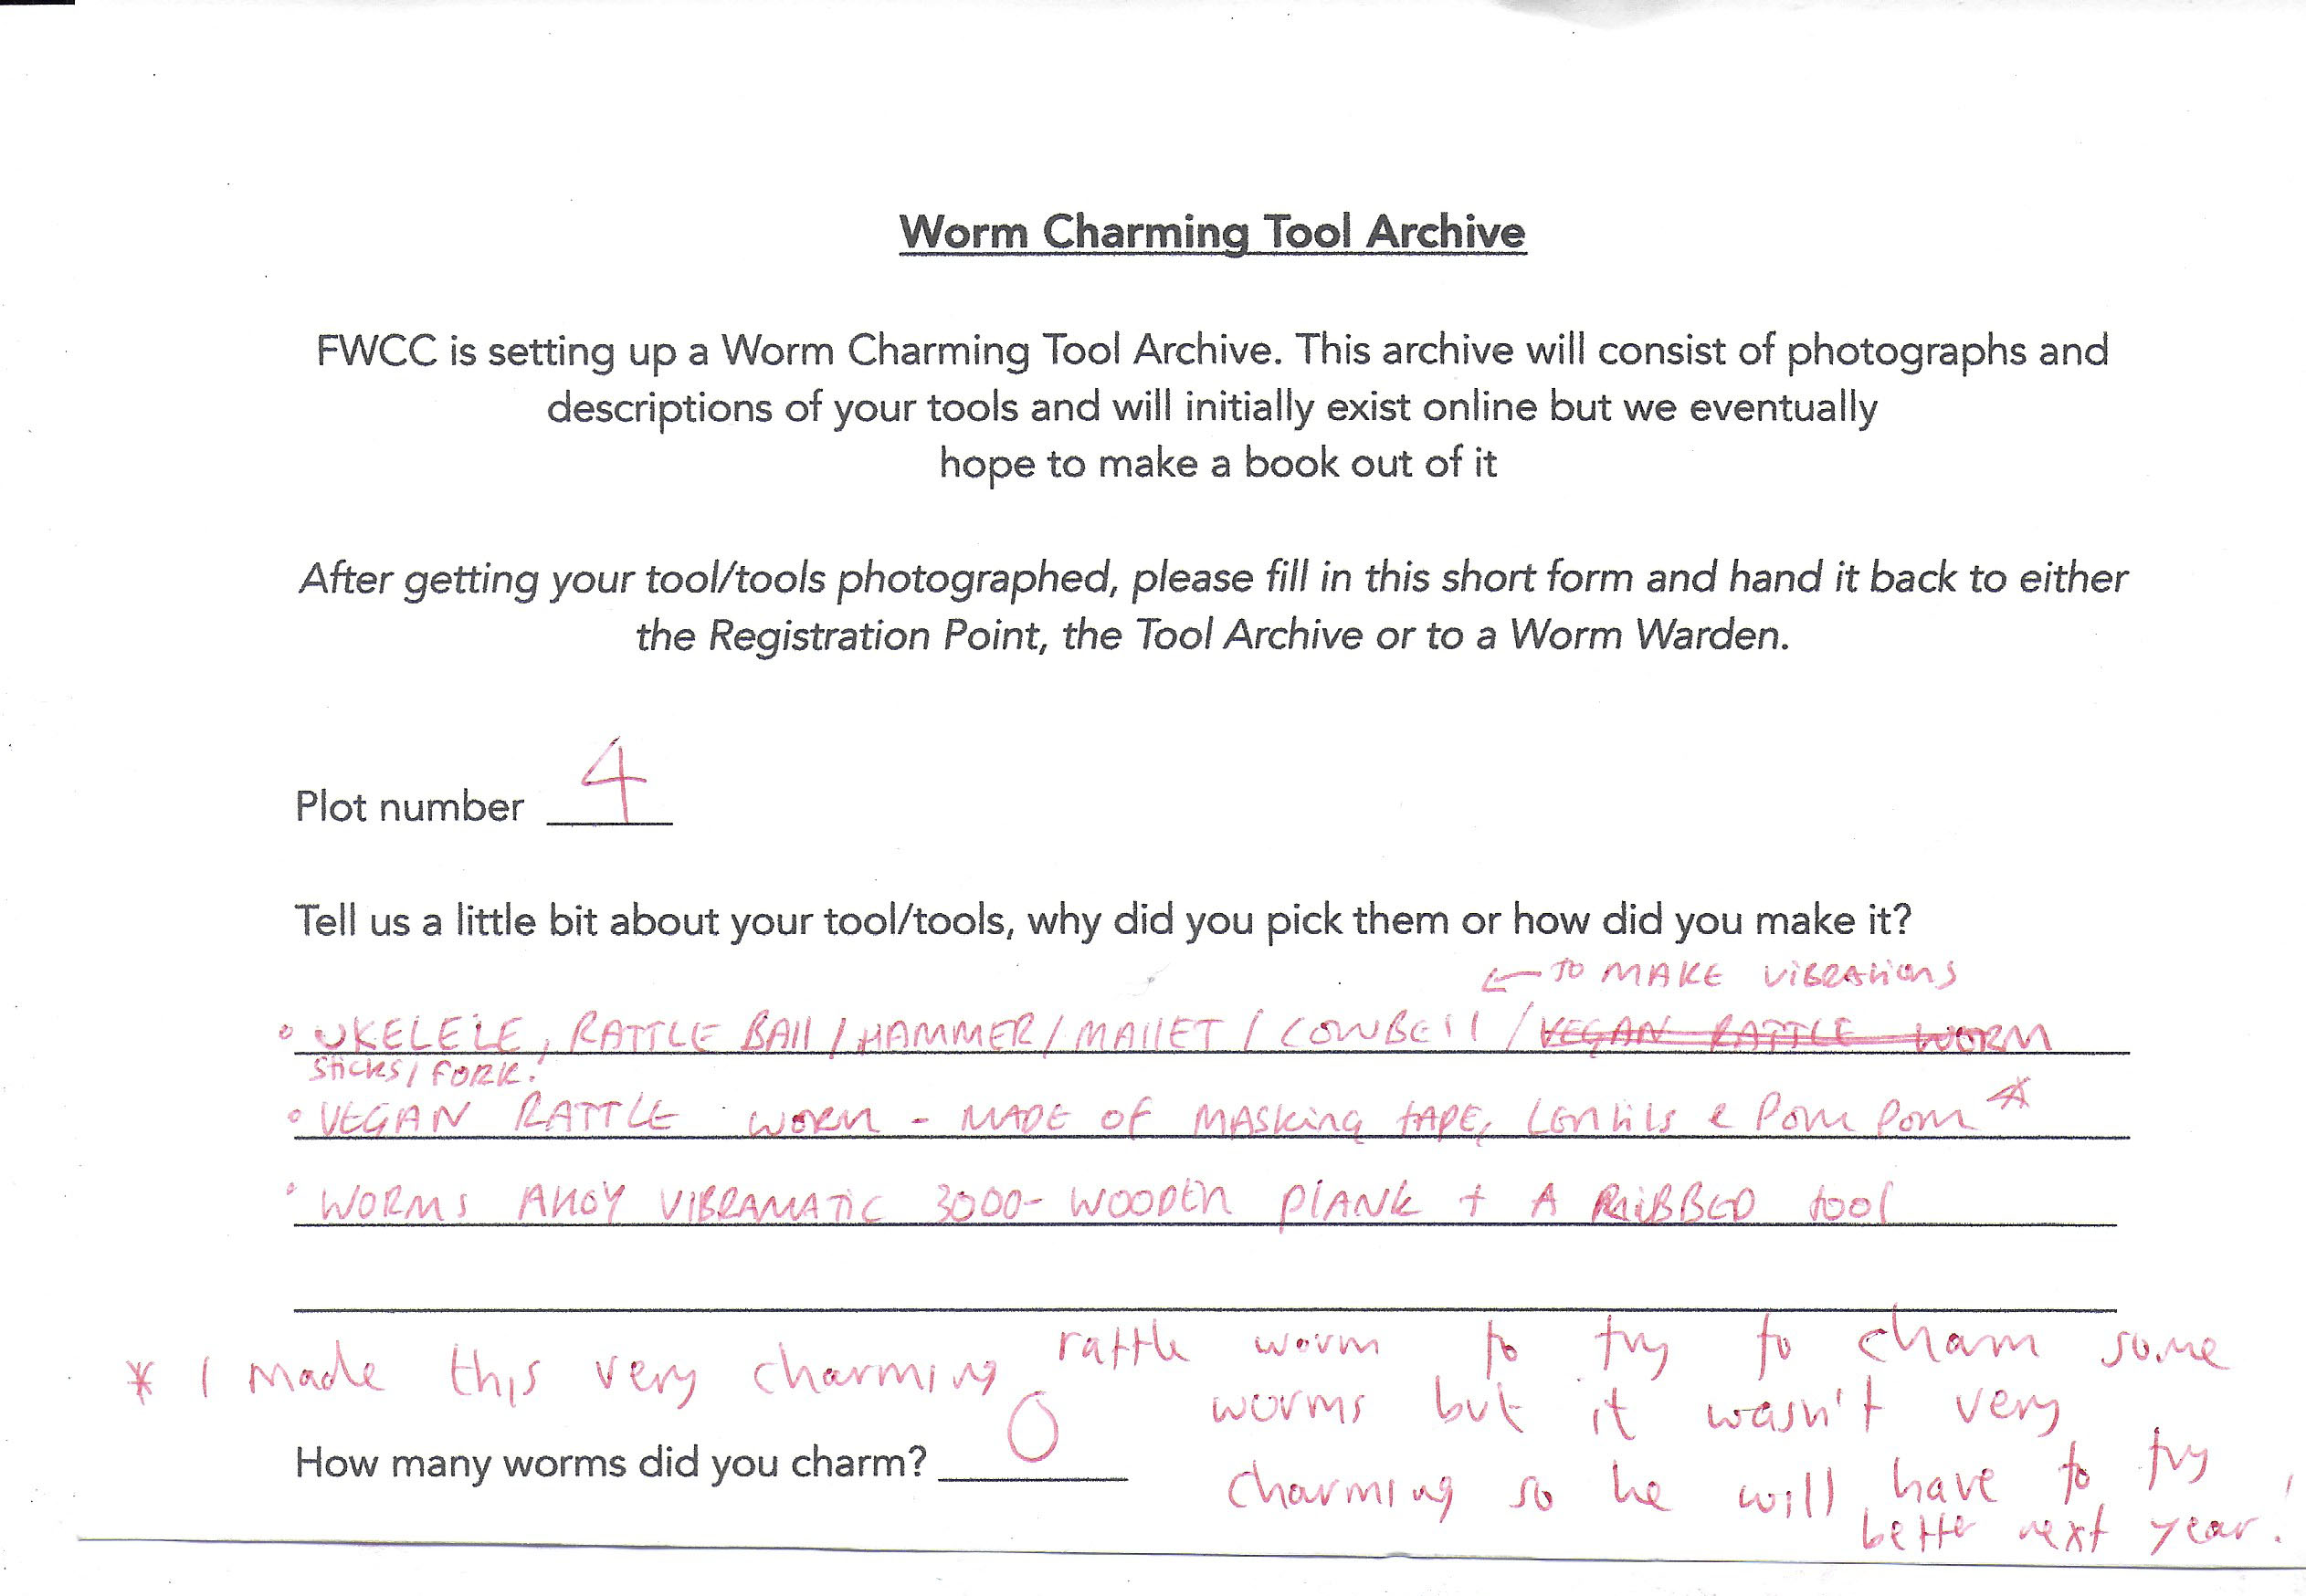 Worm Charming Tool Archive
FWCC is setting up a Worm Charming Tool Archive. This archive will consist of photographs and
descriptions of your tools and will initially exist online but we eventually
hope to make a book out of it
After getting your tool/tools photographed, please fill in this short form and hand it back to either
the Registration Point, the Tool Archive or to a Worm Warden.
Plot number 4
Tell us a little bit about your tool/tools, why did you pick them or how did you make it?
← TO MAKE VIBRATIONS
• UKELELE, RATTLE BAll / HAMMER / MAllET / COWBEll / VEGAN RATTLE WORM
STICKS / FORK.
• VEGAN RATTLE WORM - MADE OF MASKING TAPE, LENTILS & POM POM *
• WORMS AHOY VIBRAMATIC 3000 - WOODEN PLANK + A RIBBED tool
* I made this very charming rattle worm to try to cham some
worms but it wasn't very
How many worms did you charm? 0
charming so he will have to try
better next year!